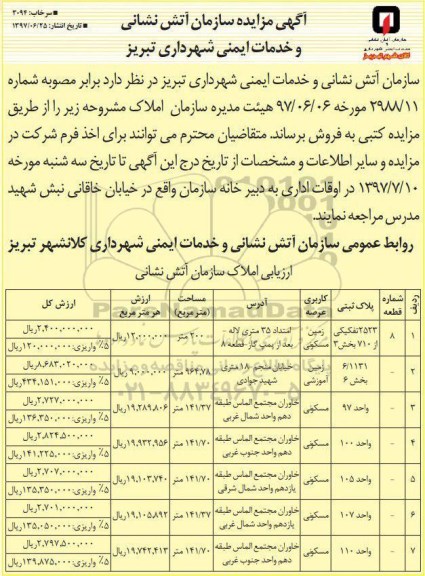 سرخاب: ۳۰۹۴
تاریخ انتشار: ۱۳۹۷/۰۶/۲۵
آگهی مزایده سازمان آتش نشانی
و خدمات ایمنی شهرداری تبریز
سازمان آتش نشانی و خدمات ایمنی شهرداری تبریز در نظر دارد برابر مصوبه شماره
۲۹۸۸/۱۱ مورخه ۹۷/۰۶/۰۶ هیئت مدیره سازمان املاک مشروحه زیر را از طریق
مزایده کتبی به فروش برساند. متقاضیان محترم می توانند برای اخذ فرم شرکت در
مزایده و سایر اطلاعات و مشخصات از تاریخ درج این آگهی تا تاریخ سه شنبه مورخه
۱۳۹۷/۷/۱۰ در اوقات اداری به دبیر خانه سازمان واقع در خیابان خاقانی نبش شهید
مدرس مراجعه نمایند.
روابط عمومی سازمان آتش نشانی و خدمات ایمنی شهرداری کلانشهر تبریز
ارزیابی املاک سازمان آتش نشانی
ردیف شماره قطعه پلاک ثبتی کاربری عرصه آدرس مساحت (متر مربع) ارزش هر متر مربع ارزش کل
۱ ۸ ۲۵۲۳تفکیکی از ۷۱۰ بخش۳ زمین مسکونی امتداد ۳۵ متری لاله - بعد از پمپ گاز- قطعه ۸ ۲۰۰ متر ۱۲،۰۰۰،۰۰۰ریال ۲،۴۰۰،۰۰۰،۰۰۰ریال ۵٪ واریزی: ۱۲۰،۰۰۰،۰۰۰ریال
۲ - ۶/۱۱۳۱ بخش ۶ زمین آموزشی خیابان منجم- ۱۸متری شهید جوادی ۹۶۴،۷۸ متر ۹،۰۰۰،۰۰۰ریال ۸،۶۸۳،۰۲۰،۰۰۰ریال ۵٪ واریزی: ۴۳۴،۱۵۱،۰۰۰ریال
۳ - واحد ۹۷ مسکونی خاوران مجتمع الماس طبقه دهم واحد شمال غربی ۱۴۱/۳۷ متر ۱۹،۲۸۹،۸۰۶ریال ۲،۷۲۷،۰۰۰،۰۰۰ریال ۵٪ واریزی: ۱۳۶،۳۵۰،۰۰۰ریال
۴ - واحد ۱۰۰ مسکونی خاوران مجتمع الماس طبقه دهم واحد جنوب غربی ۱۴۱/۷۰ متر ۱۹،۹۳۲،۹۵۶ریال ۲،۸۲۴،۵۰۰،۰۰۰ریال ۵٪ واریزی: ۱۴۱،۲۲۵،۰۰۰ریال
۵ - واحد ۱۰۵ مسکونی خاوران مجتمع الماس طبقه یازدهم واحد شمال شرقی ۱۴۱/۷۰ متر ۱۹،۱۰۳،۷۴۰ریال ۲،۷۰۷،۰۰۰،۰۰۰ریال ۵٪ واریزی: ۱۳۵،۳۵۰،۰۰۰ریال
۶ - واحد ۱۰۷ مسکونی خاوران مجتمع الماس طبقه یازدهم واحد شمال غربی ۱۴۱/۳۷ متر ۱۹،۱۰۵،۸۹۲ریال ۲،۷۰۱،۰۰۰،۰۰۰ریال ۵٪ واریزی: ۱۳۵،۰۵۰،۰۰۰ریال
۷ - واحد ۱۱۰ مسکونی خاوران مجتمع الماس طبقه دهم واحد جنوب غربی ۱۴۱/۷۰ متر ۱۹،۷۴۲،۴۱۳ریال ۲،۷۹۷،۵۰۰،۰۰۰ریال ۵٪ واریزی: ۱۳۹،۸۷۵،۰۰۰ریال